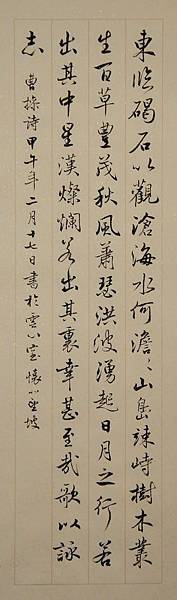 東臨碣石以觀滄海水何澹〻山島竦峙樹木叢
生百草豐茂秋風蕭瑟洪波湧起日月之行若
出其中星漢燦爛若出其裏幸甚至哉歌以詠
志 曹操詩甲午年二月十七日書於雲心室 懷坡